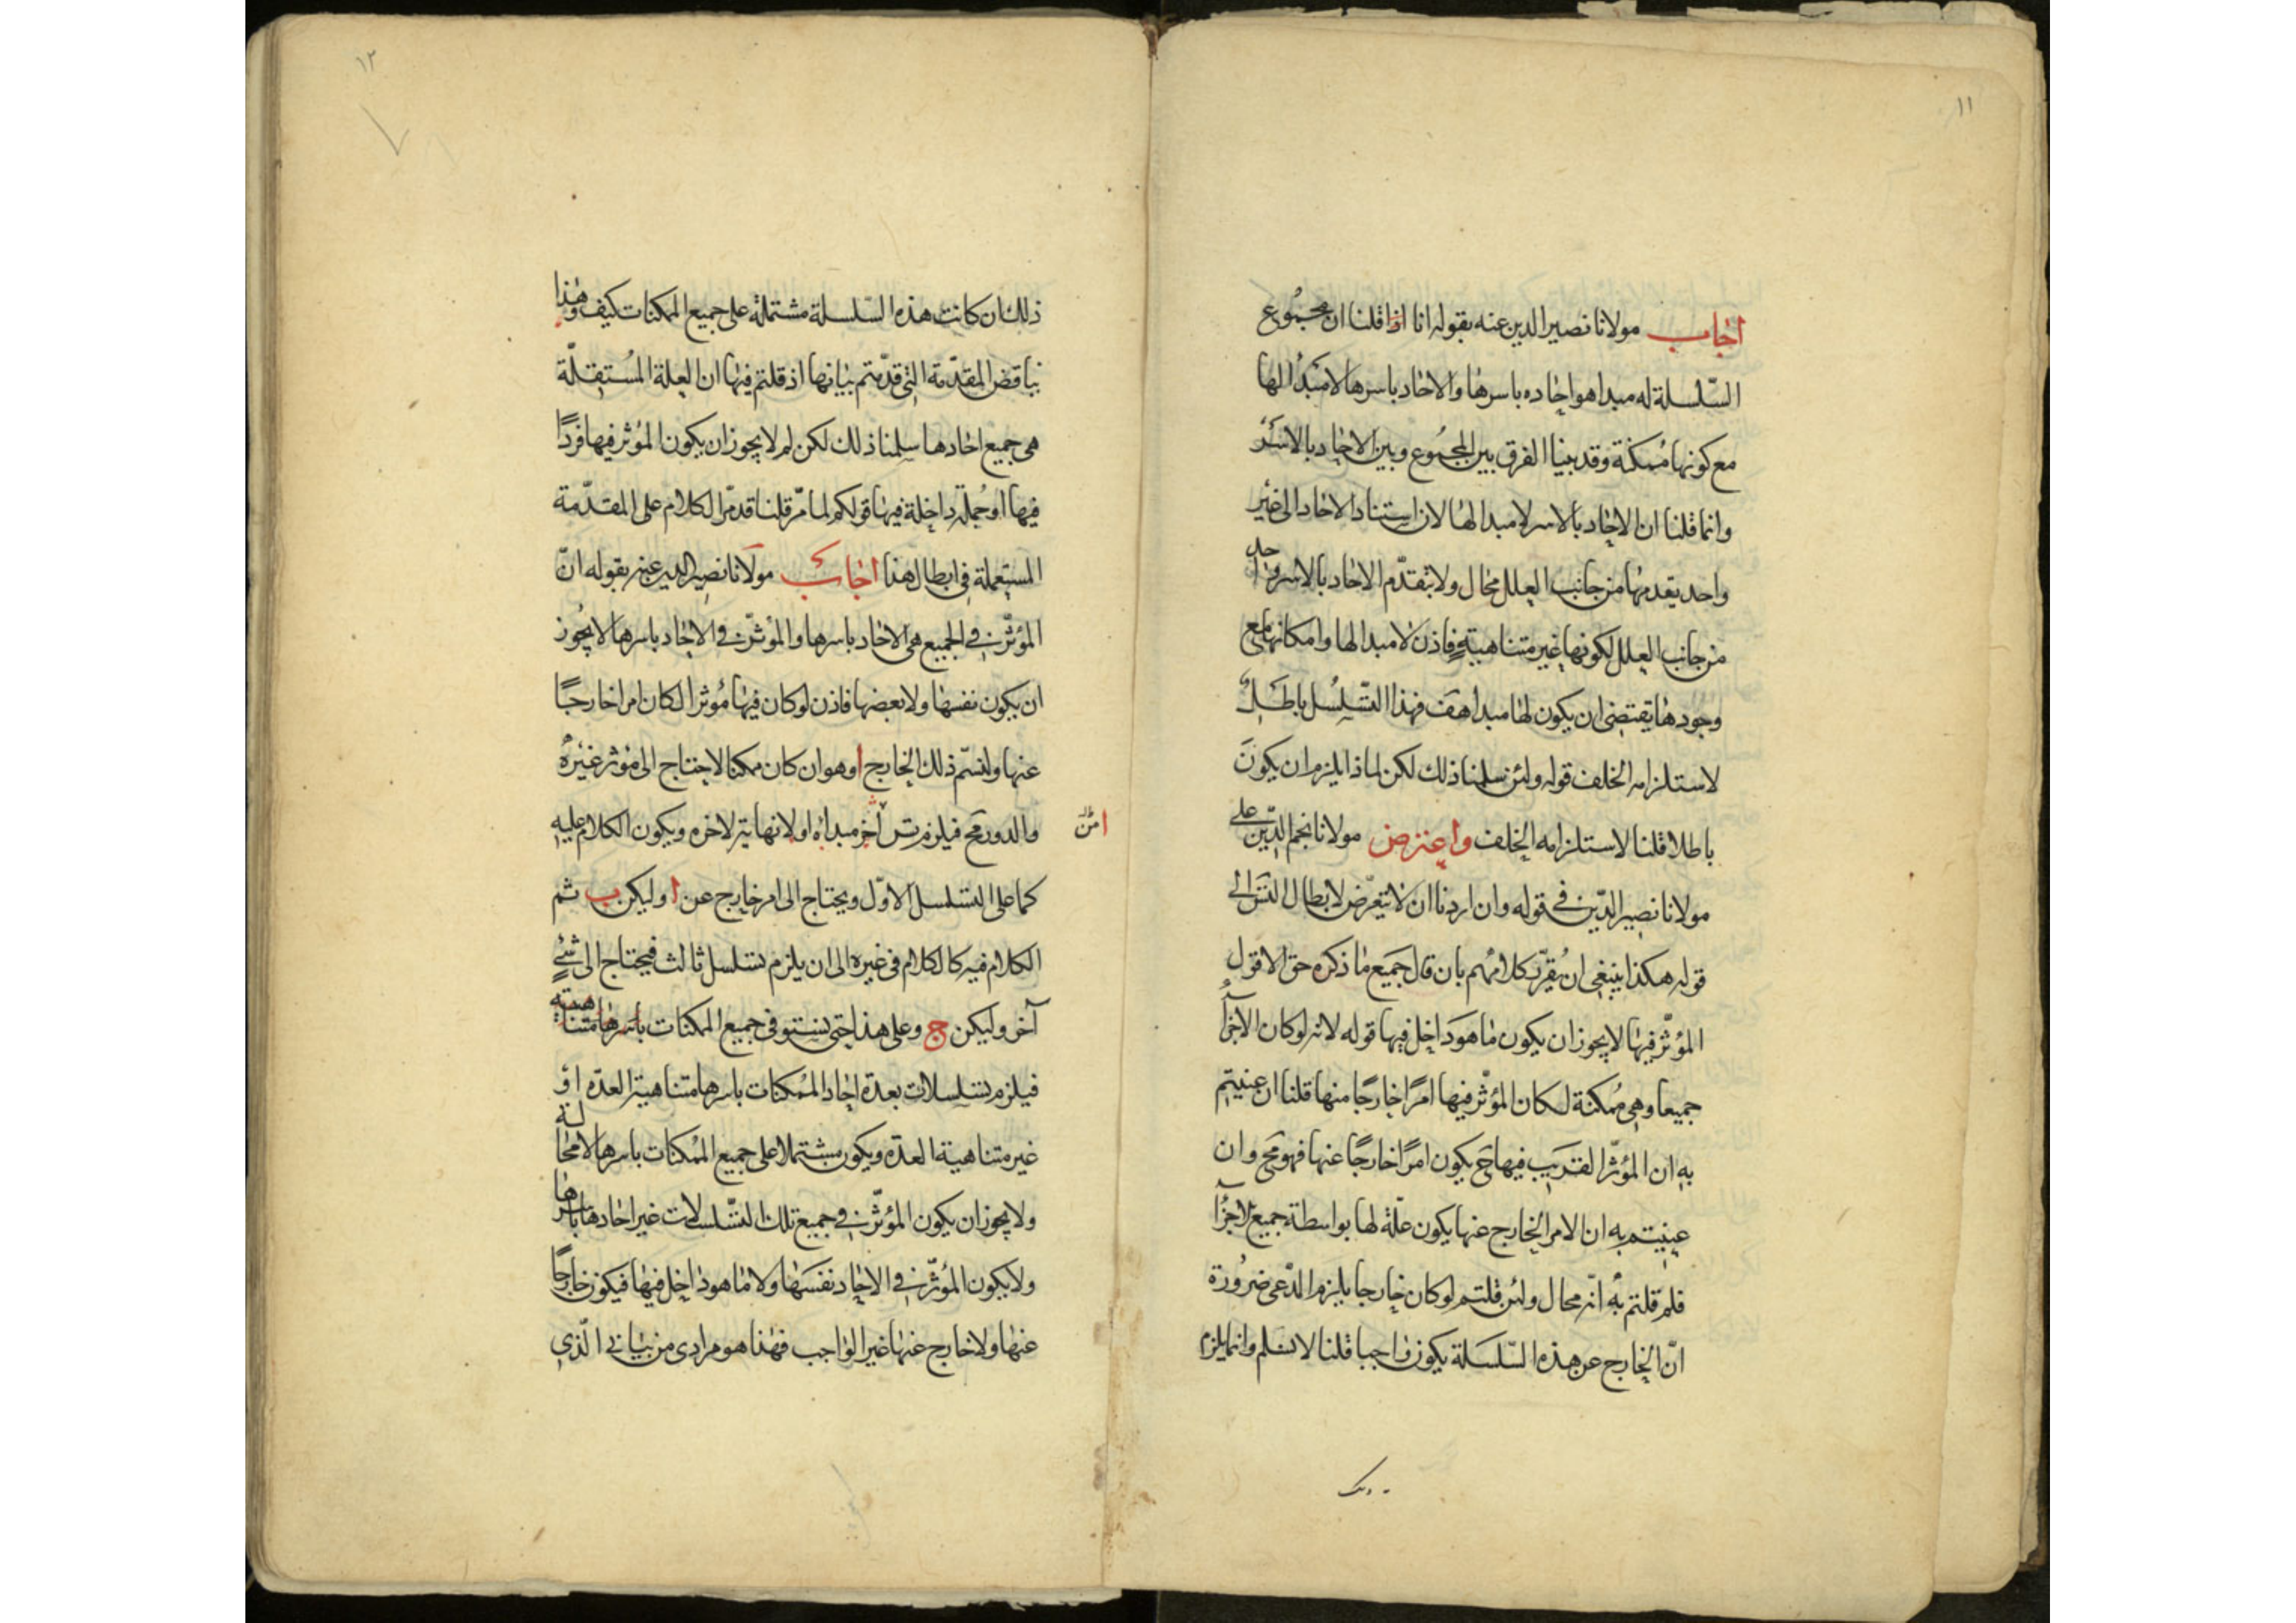 ١١
اجاب مولانا نصير الدين عنه بقوله انا اذا قلنا ان مجموع
السلسلة له مبدا هو احاده باسرها والاحاد باسرها لا مبدا لها
مع كونها ممكنة وقد بينا الفرق بين المجموع وبين الاحاد بالاسر
وانما قلنا ان الاحاد بالاسر لا مبدا لها لان استناد الاحاد الى غير
واحد يقدمها من جانب العلل محال ولا يتقدم الاحاد بالاسر واحد
من جانب العلل لكونها غير متناهية فاذن لا مبدا لها وامكانها مع
وجودها يقتضى ان يكون لها مبدا هف فهذا التسلسل باطل
لاستلزامه الخلف قوله ولئن سلمنا ذلك لكن لماذا يلزم ان يكون
باطلا قلنا لاستلزامه الخلف واعترض مولانا نجم الدين على
مولانا نصير الدين في قوله وان اردنا ان لا نتعرض لابطال التس الى
قوله هكذا ينبغى ان يقرر كلامهم بان قال جميع ما ذكره حق الا قول
المؤثر فيها لا يجوز ان يكون ما هو داخل فيها قوله لانه لو كان الاجزآ
جميعا وهى ممكنة لكان المؤثر فيها امرا خارجا منها قلنا ان عنيتم
به ان المؤثر القريب فيها ح يكون امرا خارجا عنها فهو مح وان
عنيتم به ان الامر الخارج عنها يكون علة لها بواسطة جميع الاجزآ
فلم قلتم به انه محال ولئن قلتم لو كان خارجا يلزم المدعى ضرورة
ان الخارج عن هذه السلسلة يكون واجبا قلنا لا نسلم وانما يلزم
١٢
ذلك ان كانت هذه السلسلة مشتملة على جميع الممكنات كيف وهذا
يناقض المقدمة التى قدمتم بيانها اذ قلتم فيها ان العلة المستقلة
هى جميع احادها سلمنا ذلك لكن لم لا يجوز ان يكون المؤثر فيها فردا
فيها او جملة داخلة فيها قولكم لما مر قلنا قد مر الكلام على المقدمة
المستعملة في ابطال هذا اجاب مولانا نصير الدين عنه بقوله ان
المؤثر في الجميع هى الاحاد باسرها والمؤثر في الاحاد باسرها لا يجوز
ان يكون نفسها ولا بعضها فاذن لو كان فيها مؤثر الكان امرا خارجا
عنها ولنسم ذلك الخارج ا وهو ان كان ممكنا لاحتاج الى مؤثر غيره
والدور مح فيلزم تس آخر مبداه ا ولا نهاية لاخره ويكون الكلام عليه
كما على التسلسل الاول ويحتاج الى امر خارج عن ا وليكن ب ثم
الكلام فيه كالكلام في غيره الى ان يلزم تسلسل ثالث فيحتاج الى شئ
آخر وليكن ج وعلى هذا حتى نستوفى جميع الممكنات باسرها متناهية
فيلزم تسلسلات بعدة احاد الممكنات باسرها متناهية العدة او
غير متناهية العدة ويكون مشتملا على جميع الممكنات باسرها لا محالة
ولا يجوز ان يكون المؤثر في جميع تلك التسلسلات غير احادها باسرها
ولا يكون المؤثر في الاحاد نفسها ولا ما هو داخل فيها فيكون خارجا
عنها ولا خارج عنها غير الواجب فهذا هو مرادى من بيانى الذى